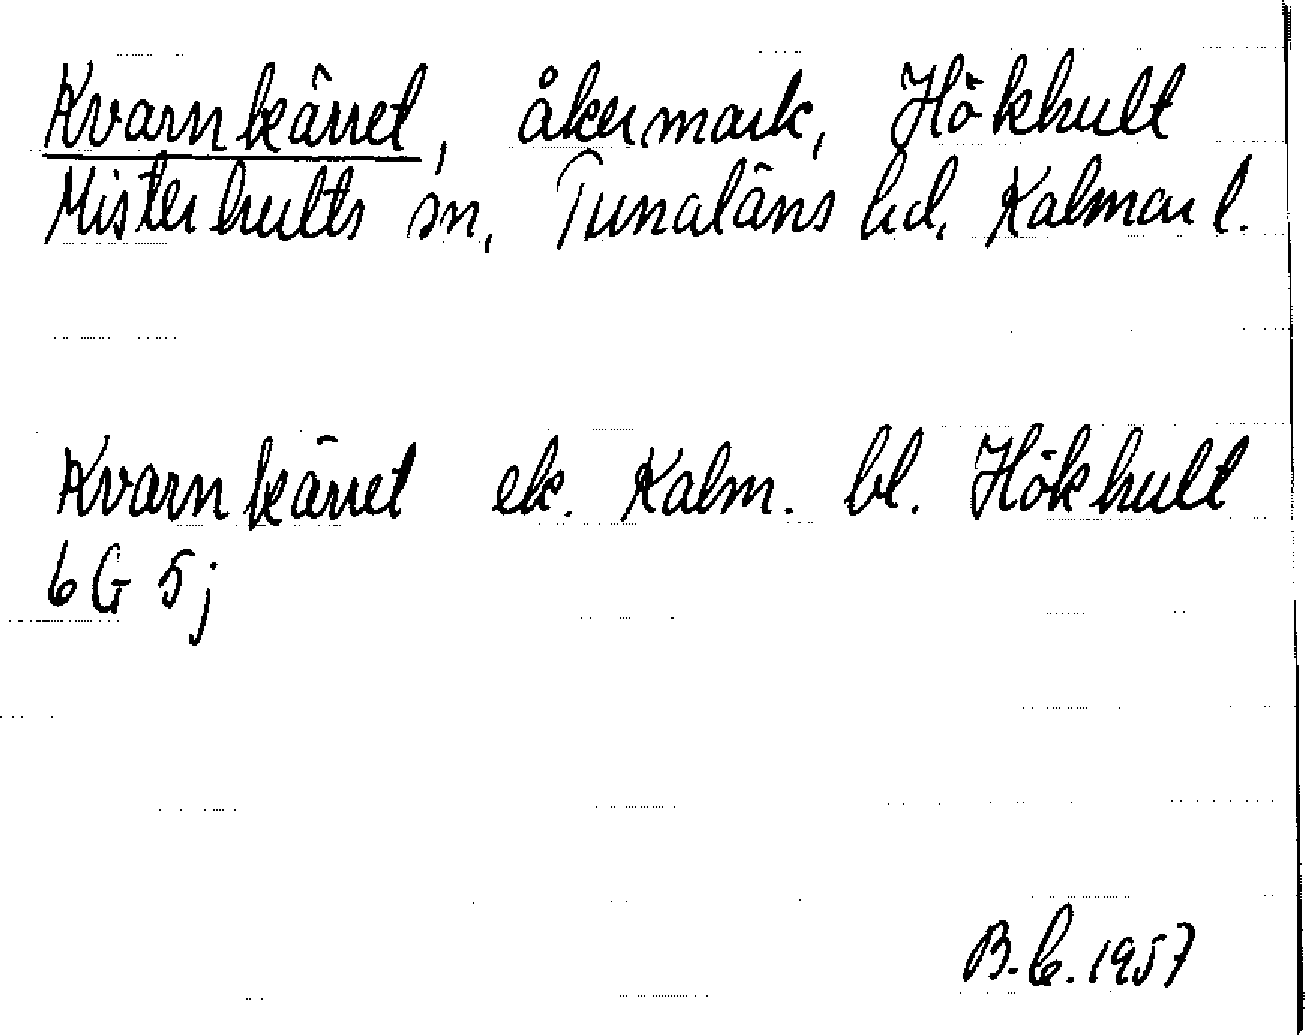 Kvarnkärret, åkermark, Hökhult
Misterhults sn, Tunaläns hd. Kalmar l.
Kvarnkärret ek. Kalm. bl. Hökhult
6G 5j
B.C. 1957